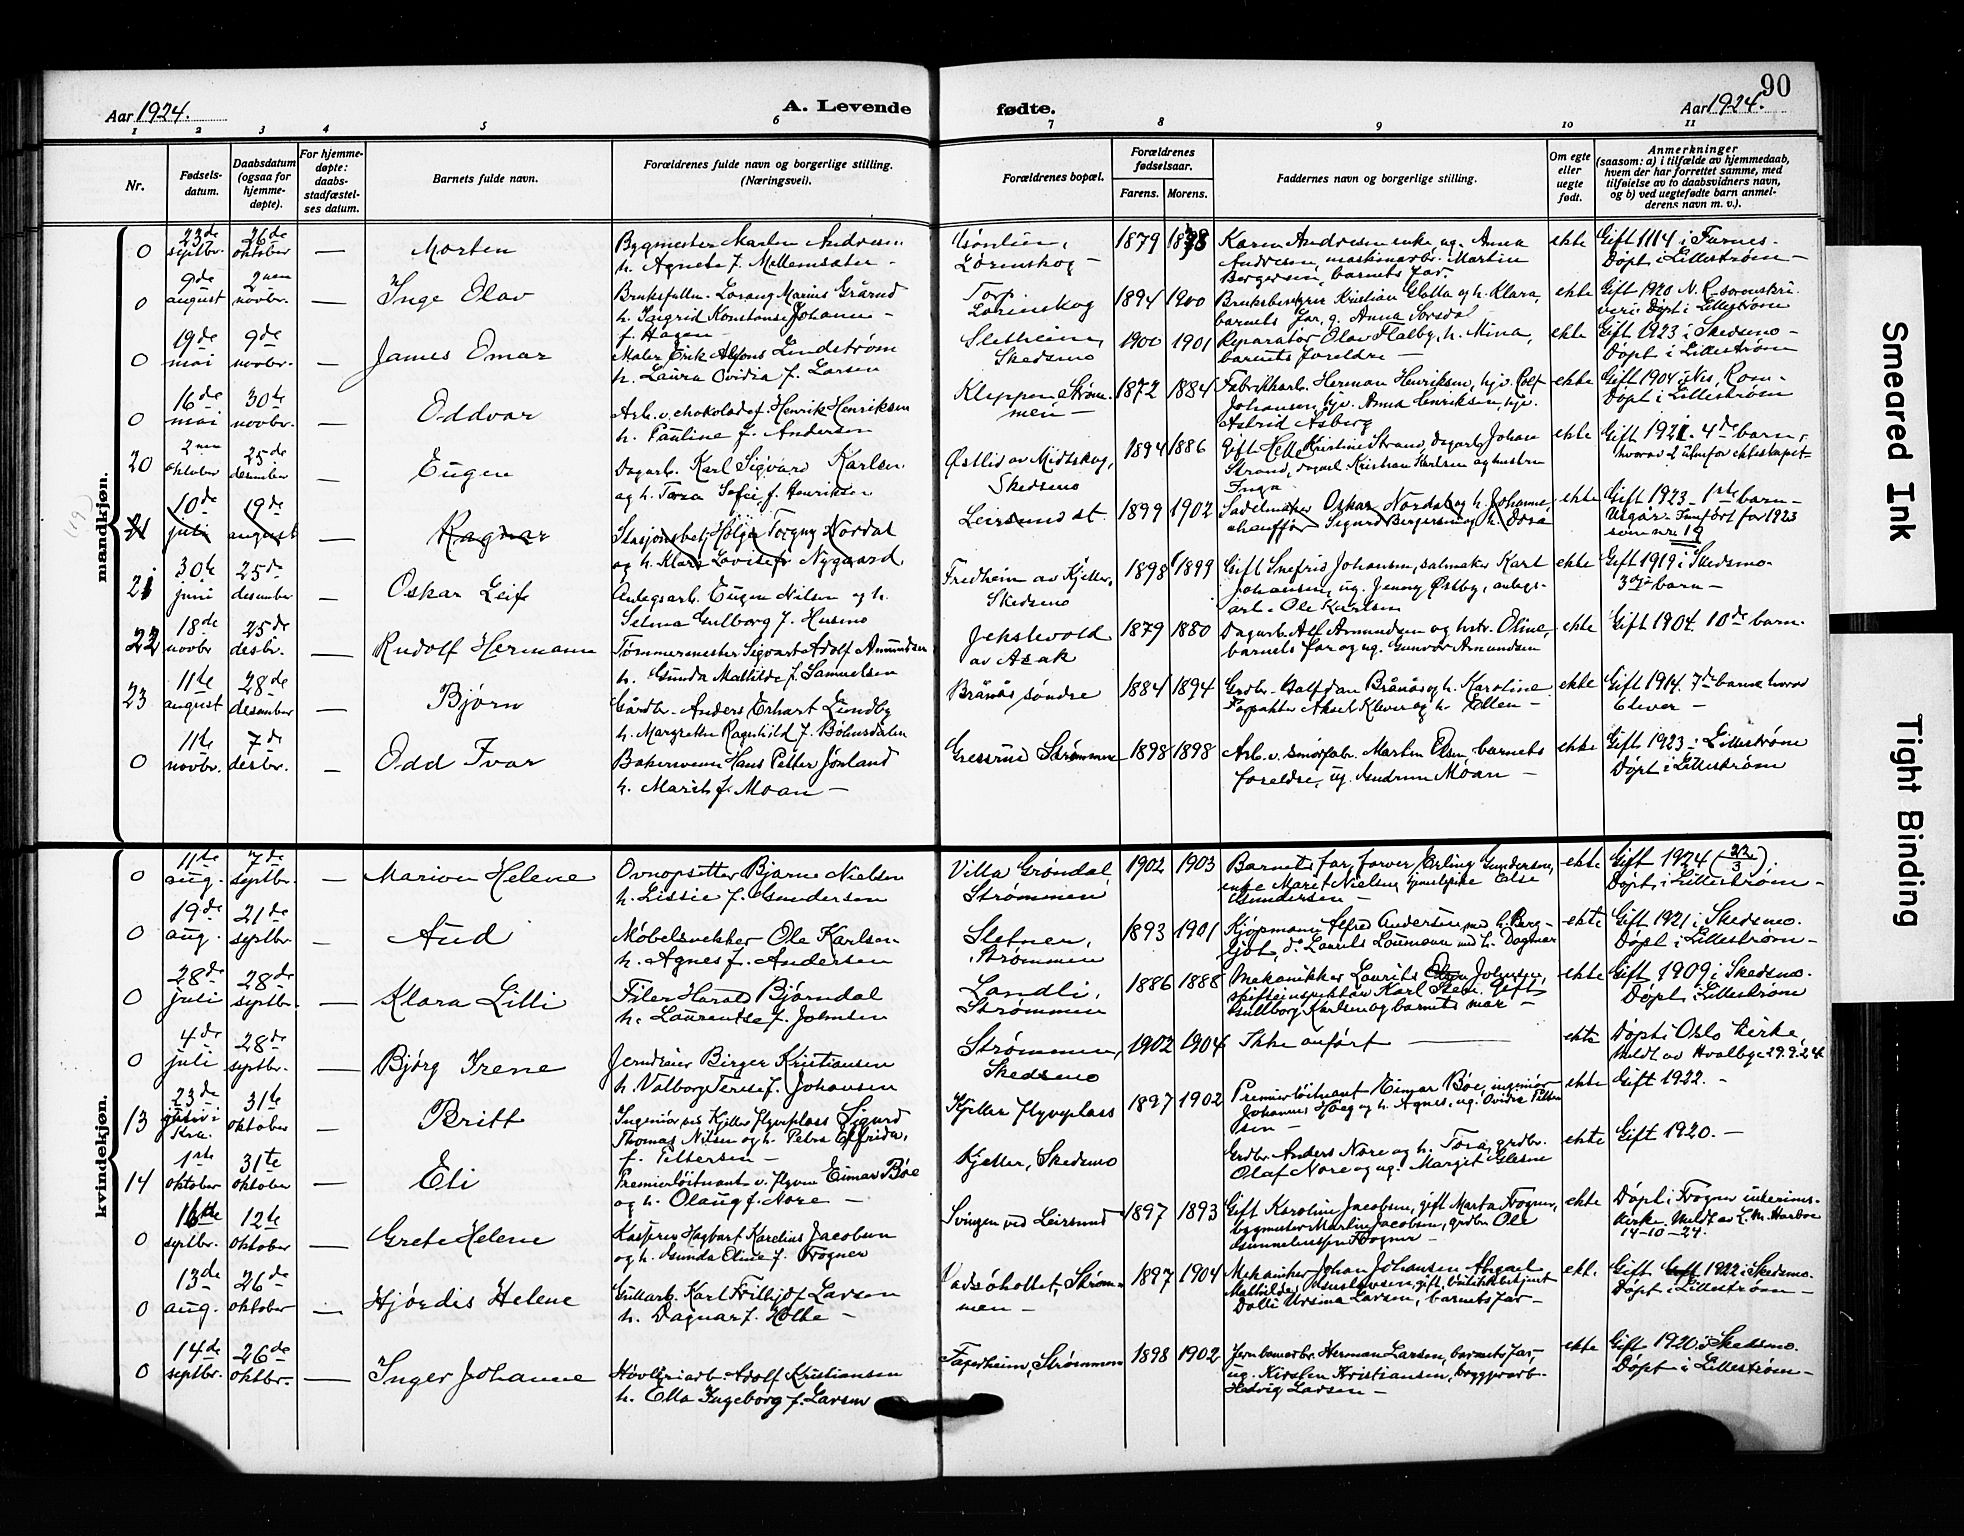 90
Aar 1924.
A. Levende
fødte.
Aar 1924.
1 2 3 4 5 6 7 8 9 10 11
Nr.
Fødsels-
datum.
Daabsdatum
(ogsaa for
hjemme-
døpte).
For hjemme-
døpte:
daabs-
stadfæstel-
ses datum.
Barnets fulde navn.
Forældrenes fulde navn og borgerlige stilling.
(Næringsvei).
Forældrenes bopæl.
Forældrenes
fødselsaar.
Farens. Morens.
Faddernes navn og borgerlige stilling.
Om egte
eller
uegte
født.
Anmerkninger
(saasom: a) i tilfælde av hjemmedaab,
hvem der har forrettet samme, med
tilføielse av to daabsvidners navn,
og b) ved uegtefødte barn anmel-
derens navn m. v.).
mandkjøn.
0 23de septbr. 26de oktober — Morten
Bygmester Martin Andresen
h. Agnete f. Mellemsæter
Lørenskog
1879 1878
Karen Andresen enke, ug. Anna
Andresen, maskinarb. Martin
Bergersen, barnets far.
ekte
Gift 1114 i Furnes.
Døpt i Lillestrøm —
0 9de august 2nen novbr. — Inge Olav
h. Ingrid Konstanse Johanne
f. Hagen
Torp.
Lørenskog
1894 1900
Bruksbestyrer Kristian Glatta og h. Klara,
barnets far, g. Anna
ekte
Gift 1920
Døpt i Lillestrøm
0 19de mai 9de novbr. — James Omar
Maler Erik Alfons Lindstrøm
h. Laura Ovidia f. Larsen
Sletheim,
Skedsmo
1900 1901
Reparatør Olav Halby, h. Mina,
barnets foreldre —
ekte
Gift 1923 i Skedsmo —
Døpt i Lillestrøm
0 16de mai 30te novbr. — Oddvar
Arb. v. chokoladef. Henrik Henriksen
h. Pauline f. Andersen
Kleppen Strøm-
men —
1872 1884
Fabrikkarb. Herman Henriksen, hjv. Rolf
Johansen, hjv. Anna Henriksen, hjv.
Astrid Asberg
ekte
Gift 1904 i Nes, Rom.
Døpt i Lillestrøm
20 2nen oktober 25de desember — Eugen
Dagarb. Karl Sigvard Karlsen
og h. Tora Sofie f. Henriksen
Østlid av Midtskog,
Skedsmo
1894 1886
Gift Helle Kristine Strand, dagarb. Johan
Strand, dagarb. Kristian Karlsen og hustru
Inga
ekte
Gift 1921. 4de barn,
hvorav 2 utenfor ekteskapet
21 10de juli 19de august — Ragnar
Stasjonsbetj. Helge Torgny Nordal
og h. Klara Lovise f. Nygaard
Leirsund st.
1899 1902
Sadelmaker Oskar Nordal og h. Johanne,
chauffør Sigurd Bergersen og h. Dora
ekte
Gift 1923 — 1ste barn —
Utgår. Innført for 1923
som nr. 19
21 30te juni 25de desember — Oskar Leif
Anlegsarb. Eugen Nilsen og h.
Selma Gulborg f. Husmo
Fredheim av Kjeller,
Skedsmo
1898 1899
Gift Snefrid Johansen, salmaker Karl
Johansen, ug. Jenny Østby, anlegs-
arb. Ole Karlsen
ekte
Gift 1919 i Skedsmo.
3dje barn —
22 18de novbr 25de desbr. — Rudolf Hermann
Tømmermester Sigvart Adolf Amundsen
h. Gunda Mathilde f. Samuelsen
Jekslevold
av Asak
1879 1880
Dagarb. Alf Amundsen og hstr. Oline,
barnets far og ug. Gunvor Amundsen
ekte
Gift 1904. 10de barn.
23 11te august 28de desember — Bjørn
Gårdbr. Anders Erhart Lundby
h. Margrethe Ragnhild f. Bøhnsdalen
Brånås søndre
1884 1894
Grdbr. Halfdan Brånås og h. Karoline
Forpakter Aksel Kleven og h. Ellen —
ekte
Gift 1914. 7de barn hvorav
6 lever —
0 11te novbr. 7de desbr. — Odd Ivar
Bakersvenn Hans Petter Jønland
h. Marit f. Moan —
Gressrud Strømmen
1898 1898
Arb. v. smørfabr. Martin Olsen, barnets
foreldre, ug. Gudrun Moan —
ekte
Gift 1923 i Lillestrøm
Døpt i Lillestrøm
kvindekjøn.
0 11te aug. 7de septbr. — Marion Helene
Ovnopsetter Bjarne Nielsen
h. Lissie f. Gundersen
Villa Grøndal
Strømmen
1902 1903
Barnets far, farver Erling Gundersen,
enke Maret Nielsen, Else
Gundersen —
ekte
Gift 1924 (22/3).
Døpt i Lillestrøm —
0 19de aug. 21de septbr. — Aud
Møbelsnekker Ole Karlsen
h. Agnes f. Andersen
Sletner,
Strømmen
1893 1901
Kjøpmann Alfred Andersen med h. Berg-
ljot, d. Laurits Loumann med h. Dagmar
ekte
Gift 1921 i Skedsmo.
Døpt i Lillestrøm —
0 28de juli 28de septbr. — Klara Lilli
Filer Harald Bjørndal
h. Laurentse f. Johnsen
Landli,
Strømmen
1886 1888
Mekanikker Laurits Johnsen,
skifteinspektør Karl Steen. Gift
Gullborg Karlsen og barnets mor —
ekte
Gift 1909 i Skedsmo.
Døpt i Lillestrøm
0 4de juli 28de septbr. — Bjørg Irene
Jerndreier Birger Kristiansen
h. Valborg Terese f. Johansen
Strømmen,
Skedsmo
1902 1904
Ikke anført —
ekte
Døpt i Oslo kirke,
Meldt av Hvalbye 29.9.24
13 23de juni i Kra. 31te oktober — Britt
Ingeniør ved Kjeller flyveplass Sigurd
Thomas Nilsen og h. Petra Elfrida,
f. Pettersen —
Kjeller flyveplass
1897 1902
Premierløitnant Eimar Bøe, ingeniør
Johannes Høeg og h. Agnes, ug. Ovidia Petter-
sen —
ekte
Gift 1922. —
14 1ste oktober 31te oktober — Eli
Premierløitnant v. flyven Eimar Bøe
og h. Olaug f. Nore —
Kjeller, Skedsmo
Grdbr. Anders Nore og h. Tora, grdbr.
Olaf Nore og ug. Margit Glesne
ekte
Gift 1920. —
0 16de septbr. 12te oktober — Grete Helene
Hagbart Karelius Jacobsen
og h. Gunda Oline f. Frogner
Svingen ved Leirsund
1897 1893
Gift Karoline Jacobsen, gift Marta Frogner,
bygmester Martin Jacobsen, grdbr. Ole
Frogner —
ekte
Døpt i Frogner interims-
kirke. Meldt av L. M. Harboe
14-10-24.
0 13de aug. 26de oktober — Hjørdis Helene
Gullarb. Karl Fritjof Larsen
h. Dagmar f. Holte —
Vadsøholtet, Strøm-
men —
1897 1904
Mekaniker Johan Johansen Abigael
Mathilde Gustavsen, gift, butikkbetjent
Dolli Ursina Larsen, barnets far —
ekt.
Gift 1922 i Skedsmo.
Døpt i Lillestrøm —
0 14de septbr. 26de oktbr. — Inger Johanne
Høvleriarb. Adolf Kristiansen
h. Ella Ingeborg f. Larsen
Fagerheim, Strømmen
1898 1902
Jernbanearbr. Herman Larsen, barnets far,
ug. Kirsten Kristiansen, bryggearb.
Hedvig Larsen —
ekte
Gift 1920 i Skedsmo.
Døpt i Lillestrøm —
Smeared Ink
Tight Binding